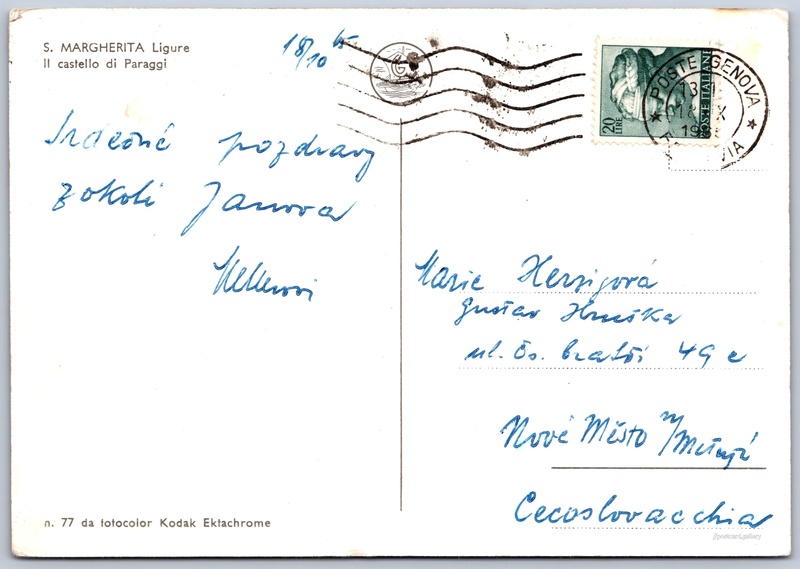 S. MARGHERITA Ligure
Il castello di Paraggi
18/10 65
Srdečné pozdravy
z okolí Janova
POSTE GENOVA
20 LIRE
POSTE ITALIANE
Marie Herzigová
Gustav Hruška
ul. Čs. bratří 49 c
Nové Město n/Metují
Cecoslovacchia
n. 77 da fotocolor Kodak Ektachrome